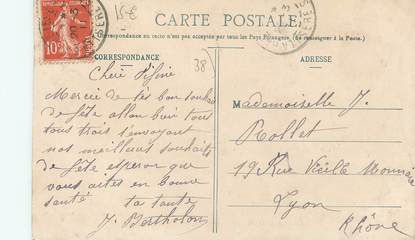 15€
CARTE POSTALE
Correspondance au recto n'est pas acceptée par tous les Pays Étrangers. (Se renseigner à la Poste.)
CORRESPONDANCE
38)
ADRESSE
10
Chère Fifine
Mercie de tes bon souhait
de fête allon bien tous
tous trois t'envoyont
nos meilleurs souhaits
de fête esperon que
vous aites en bonne
santé ta tante
J. Bertholon
Mademoiselle J.
Rollet
19 Rue Vieille Monnaie
Lyon
Rhône